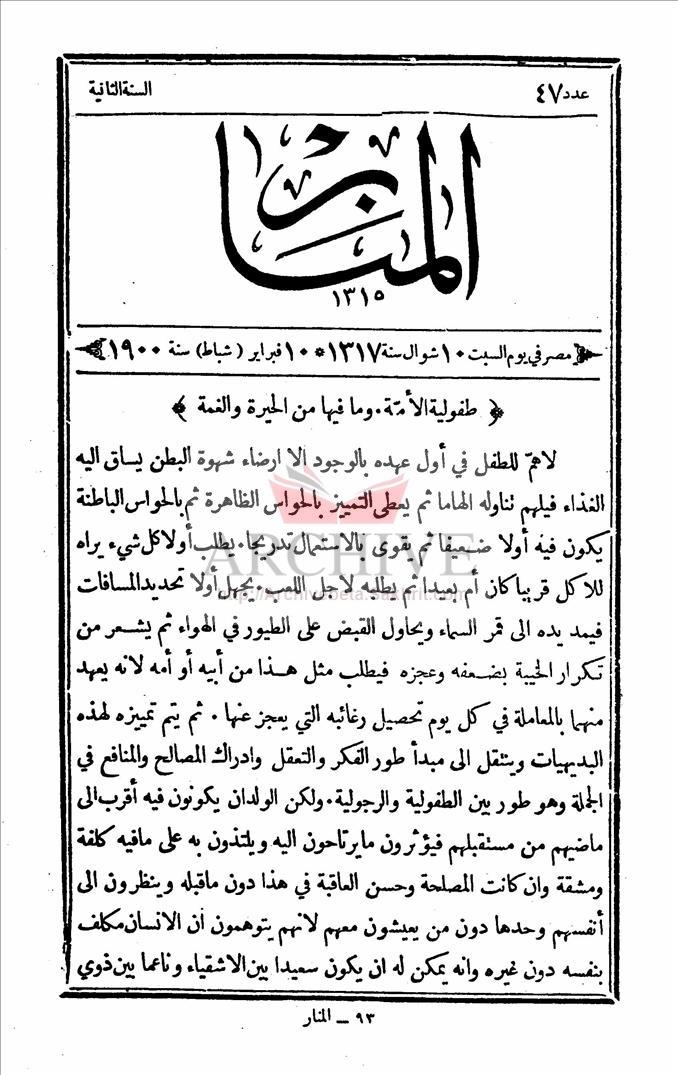 عدد ٤٧
السنة الثانية
المنار
١٣١٥
مصر في يوم السبت ١٠ شوال سنة ١٣١٧ * ١٠ فبراير ( شباط ) سنة ١٩٠٠
﴿ طفولية الأمّة . وما فيها من الحيرة والغمة ﴾
لا همّ للطفل في أول عهده بالوجود الا ارضاء شهوة البطن يساق اليه
الغذاء فيلهم تناوله الهاما ثم يعطى التمييز بالحواس الظاهرة ثم بالحواس الباطنة
يكون فيه أولا ضعيفا ثم يقوى بالاستعمال تدريجا . يطلب أولا كل شيء يراه
للاكل قريبا كان أم بعيدا ثم يطلبه لاجل اللعب . يجهل أولا تحديد المسافات
فيمد يده الى قمر السماء ويحاول القبض على الطيور في الهواء ثم يشعر من
تكرار الخيبة بضعفه وعجزه فيطلب مثل هذا من أبيه أو أمه لانه يعهد
منهما بالمعاملة في كل يوم تحصيل رغائبه التي يعجز عنها . ثم يتم تمييزه لهذه
البديهيات وينتقل الى مبدأ طور الفكر والتعقل وادراك المصالح والمنافع في
الجملة وهو طور بين الطفولية والرجولية . ولكن الولدان يكونون فيه أقرب الى
ماضيهم من مستقبلهم فيؤثرون ما يرتاحون اليه ويلتذون به على ما فيه كلفة
ومشقة وان كانت المصلحة وحسن العاقبة في هذا دون ما قبله وينظرون الى
أنفسهم وحدها دون من يعيشون معهم لانهم يتوهمون أن الانسان مكلف
بنفسه دون غيره وانه يمكن له ان يكون سعيدا بين الاشقياء وناعما بين ذوي
٩٣ ــ المنار
ARCHIVE
http://Archivebeta.Sakhrit.com